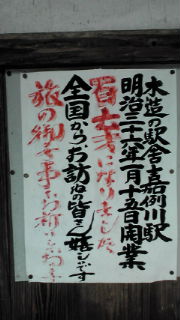 木造の駅舎嘉例川駅
明治三十六年一月十五日開業
百十才になりました
全国からお訪ねの皆さん嬉しいです
旅の御無事をお祈り